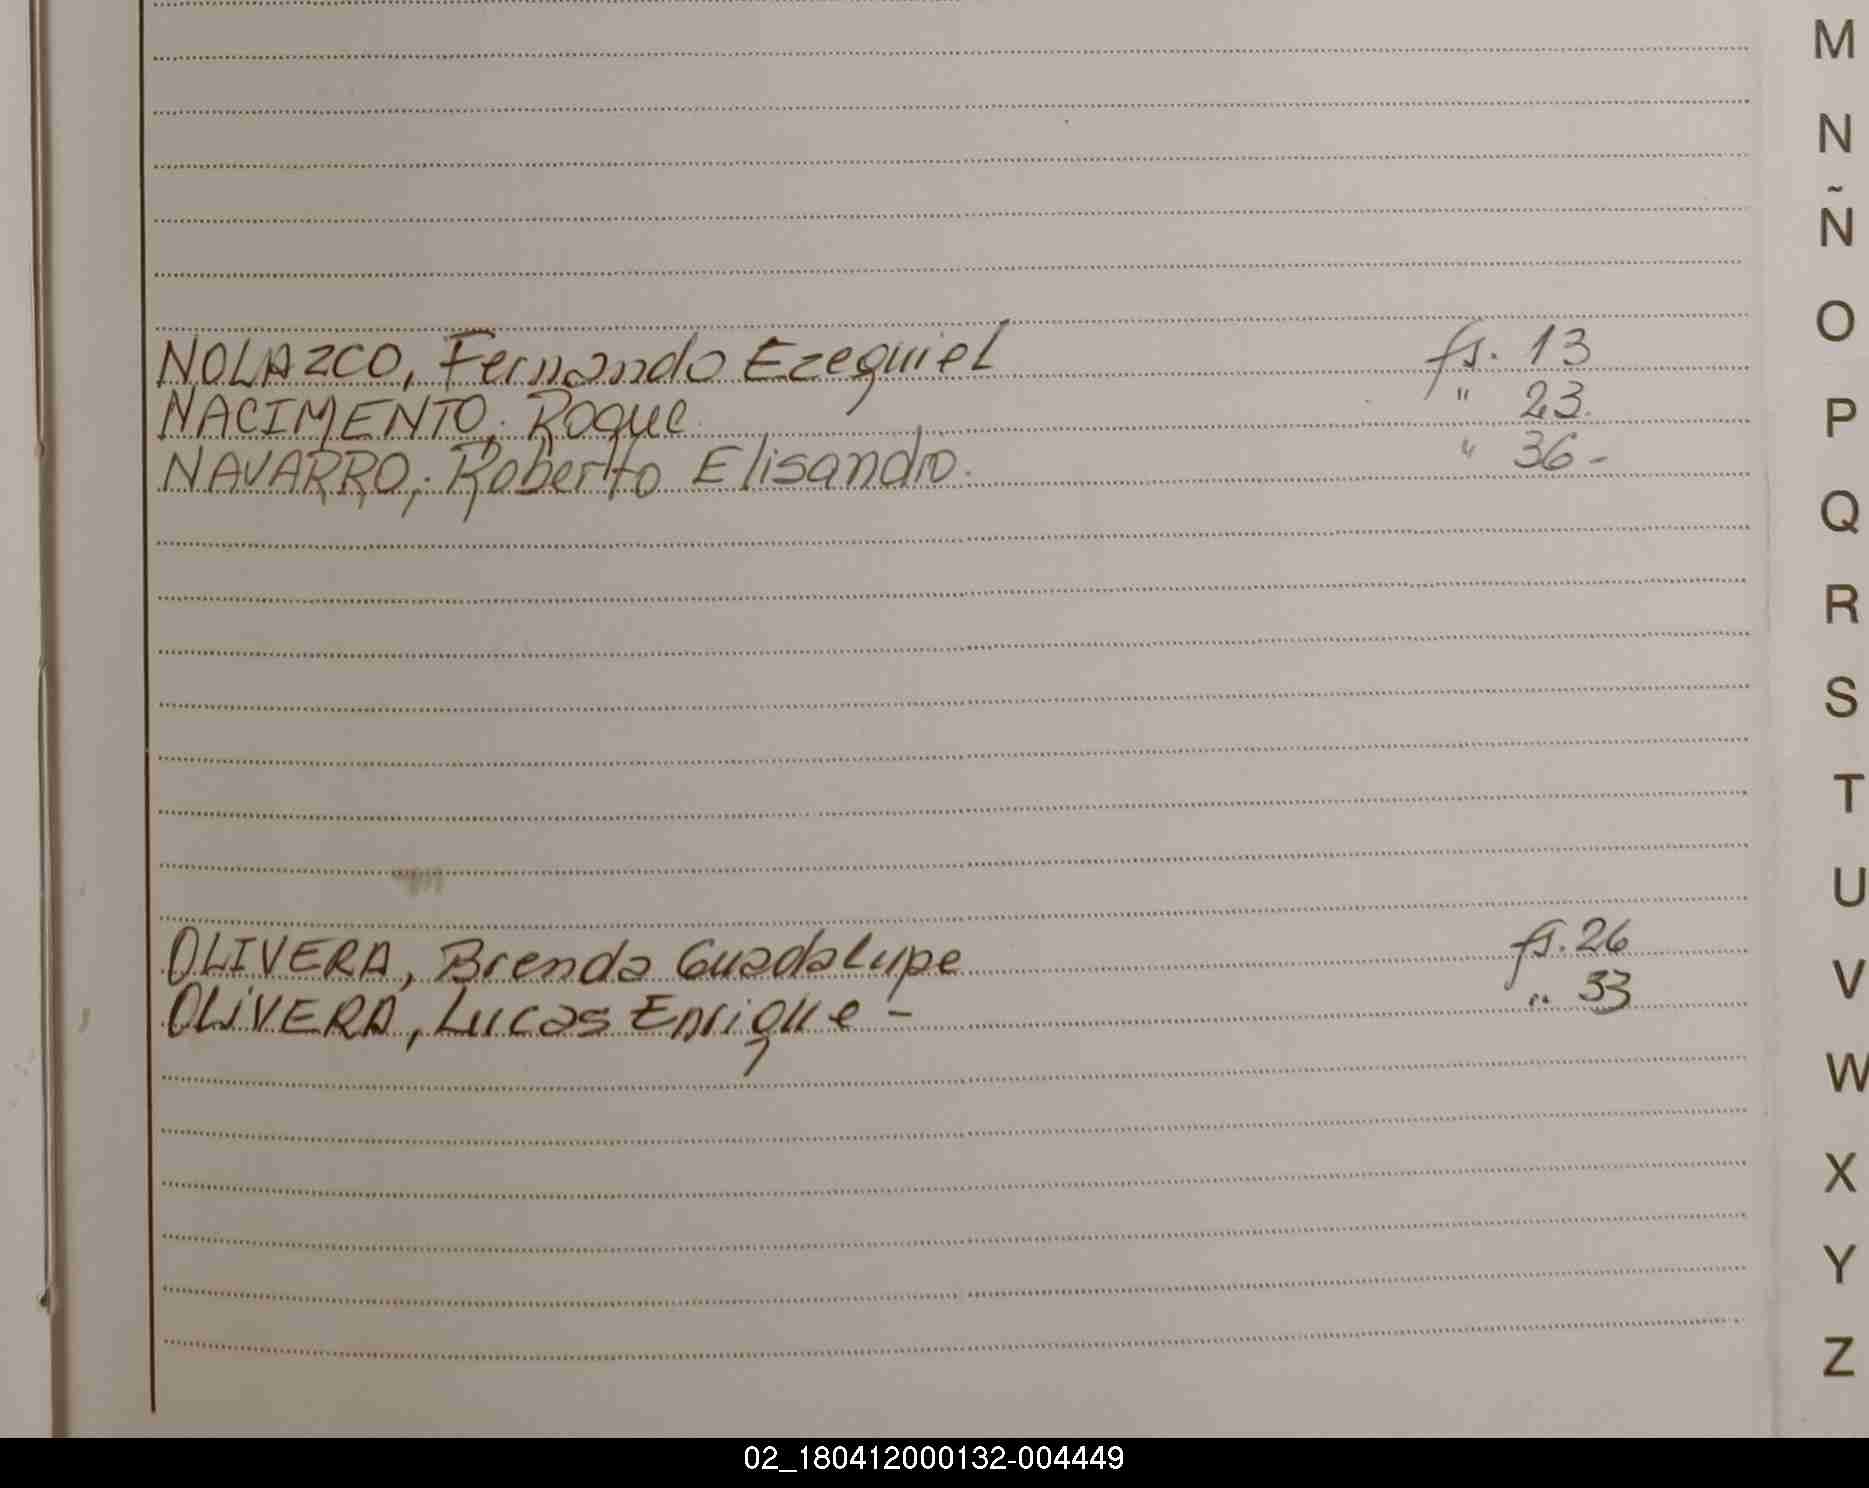 NOLAZCO, Fernando Ezequiel fs. 13
NACIMENTO, Roque " 23.
NAVARRO, Roberto Elisandro. " 36-
OLIVERA, Brenda Guadalupe fs. 26
OLIVERA, Lucas Enrique - " 33
M
N
Ñ
O
P
Q
R
S
T
U
V
W
X
Y
Z
02_180412000132-004449